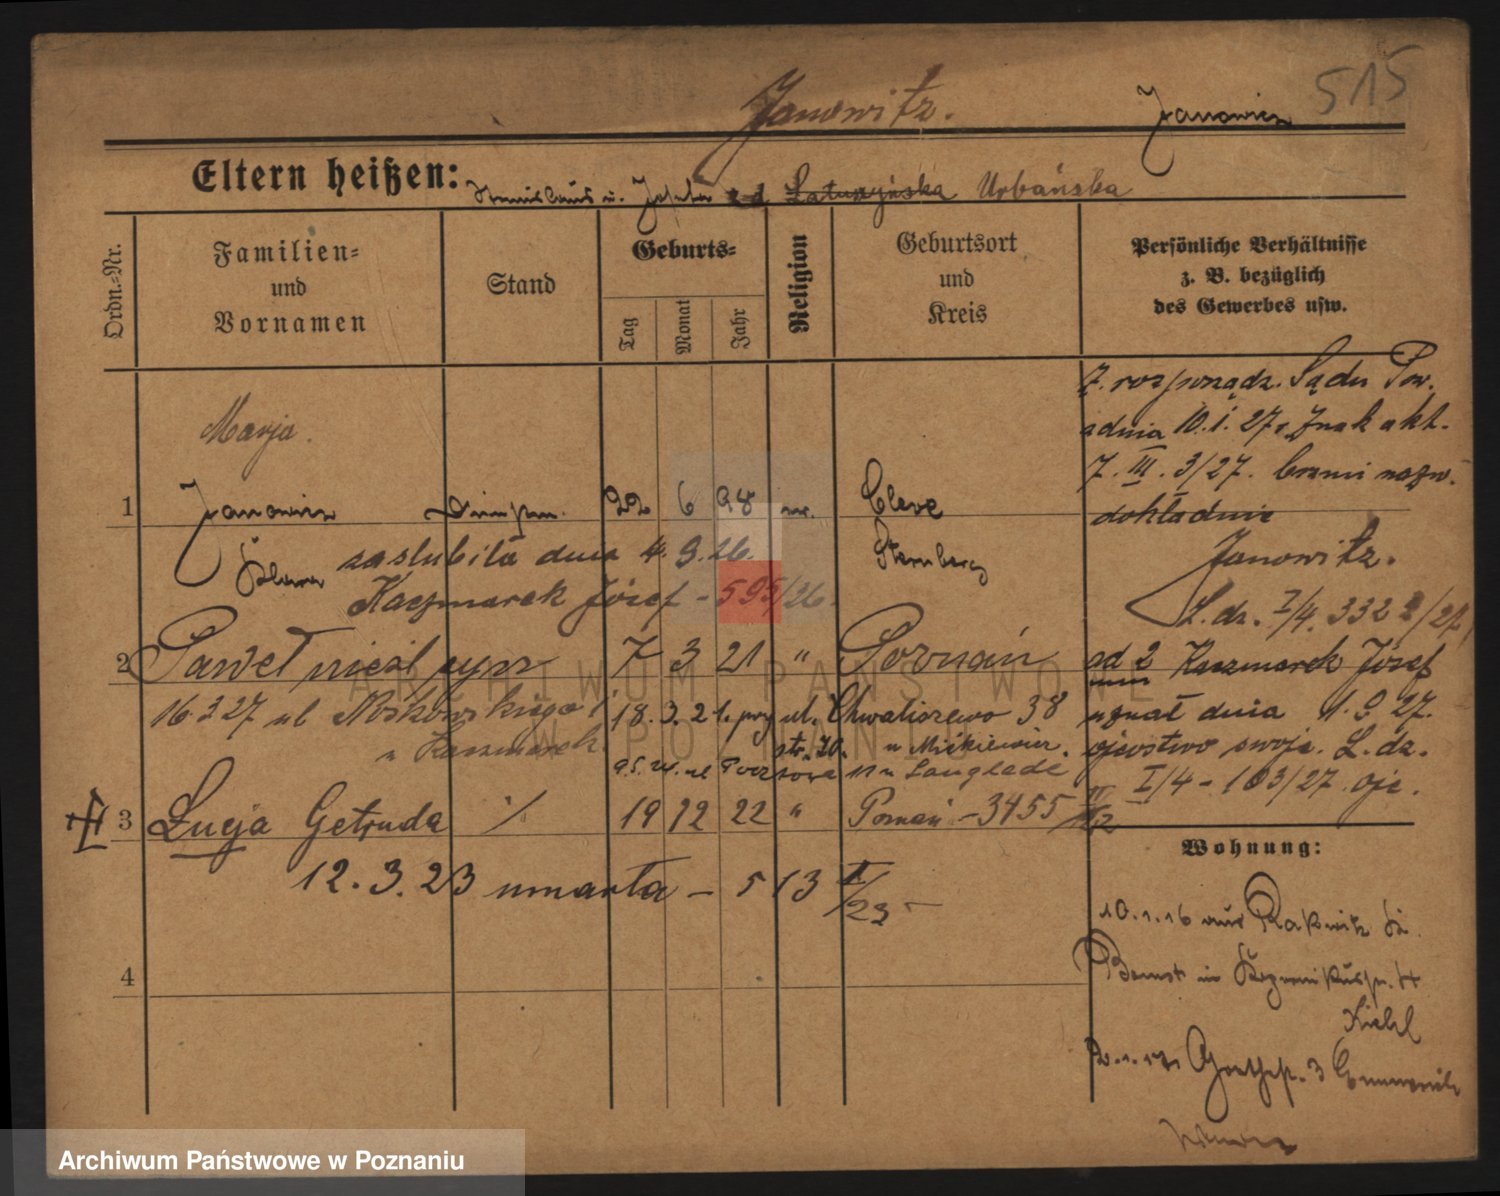 515
Janowitz.
Janowicz
Eltern heißen:
Stanislaus u. Josefa Latuszyńska Urbańska
Ordn.-Nr.
Familien-
und
Vornamen
Stand
Geburts-
Tag
Monat
Jahr
Religion
Geburtsort
und
Kreis
Persönliche Verhältnisse
z. B. bezüglich
des Gewerbes usw.
Marja.
1 Janowicz 22 6 98 Cleve
Sternberg
zaslubiła dnia 4. 9. 26.
Kaczmarek Józef - 595/26.
Z. rozporządz. Sądu Pow.
z dnia 10. 1. 27 r. Znak akt.
7. III. 3/27. brzmi nazw.
dokładnie
Janowitz.
L. dz. I/4. 332 /27
2 Paweł nieśl. syn 7 3 21 " Poznań
16.3.27 ul Noskowskiego
u Kaczmarek
18. 3. 21. przy ul. Chwaliszewo 38
str. 70. u Mićkiewicz.
ul Pocztowa u Langlade
ad 2 Kaczmarek Józef
uznał dnia 1. 9. 27.
ojcostwo swoje. L. dz.
I/4 - 103/27. ojc.
3 Łucja Getruda ٪ 19 12 22 " Poznań - 3455
12. 3. 23 umarła - 513 /23 -
4
Wohnung:
10.1.16 aus Rakwitz
in
Goethestr. 3
ARCHIWUM PAŃSTWOWE
W POZNANIU
Archiwum Państwowe w Poznaniu